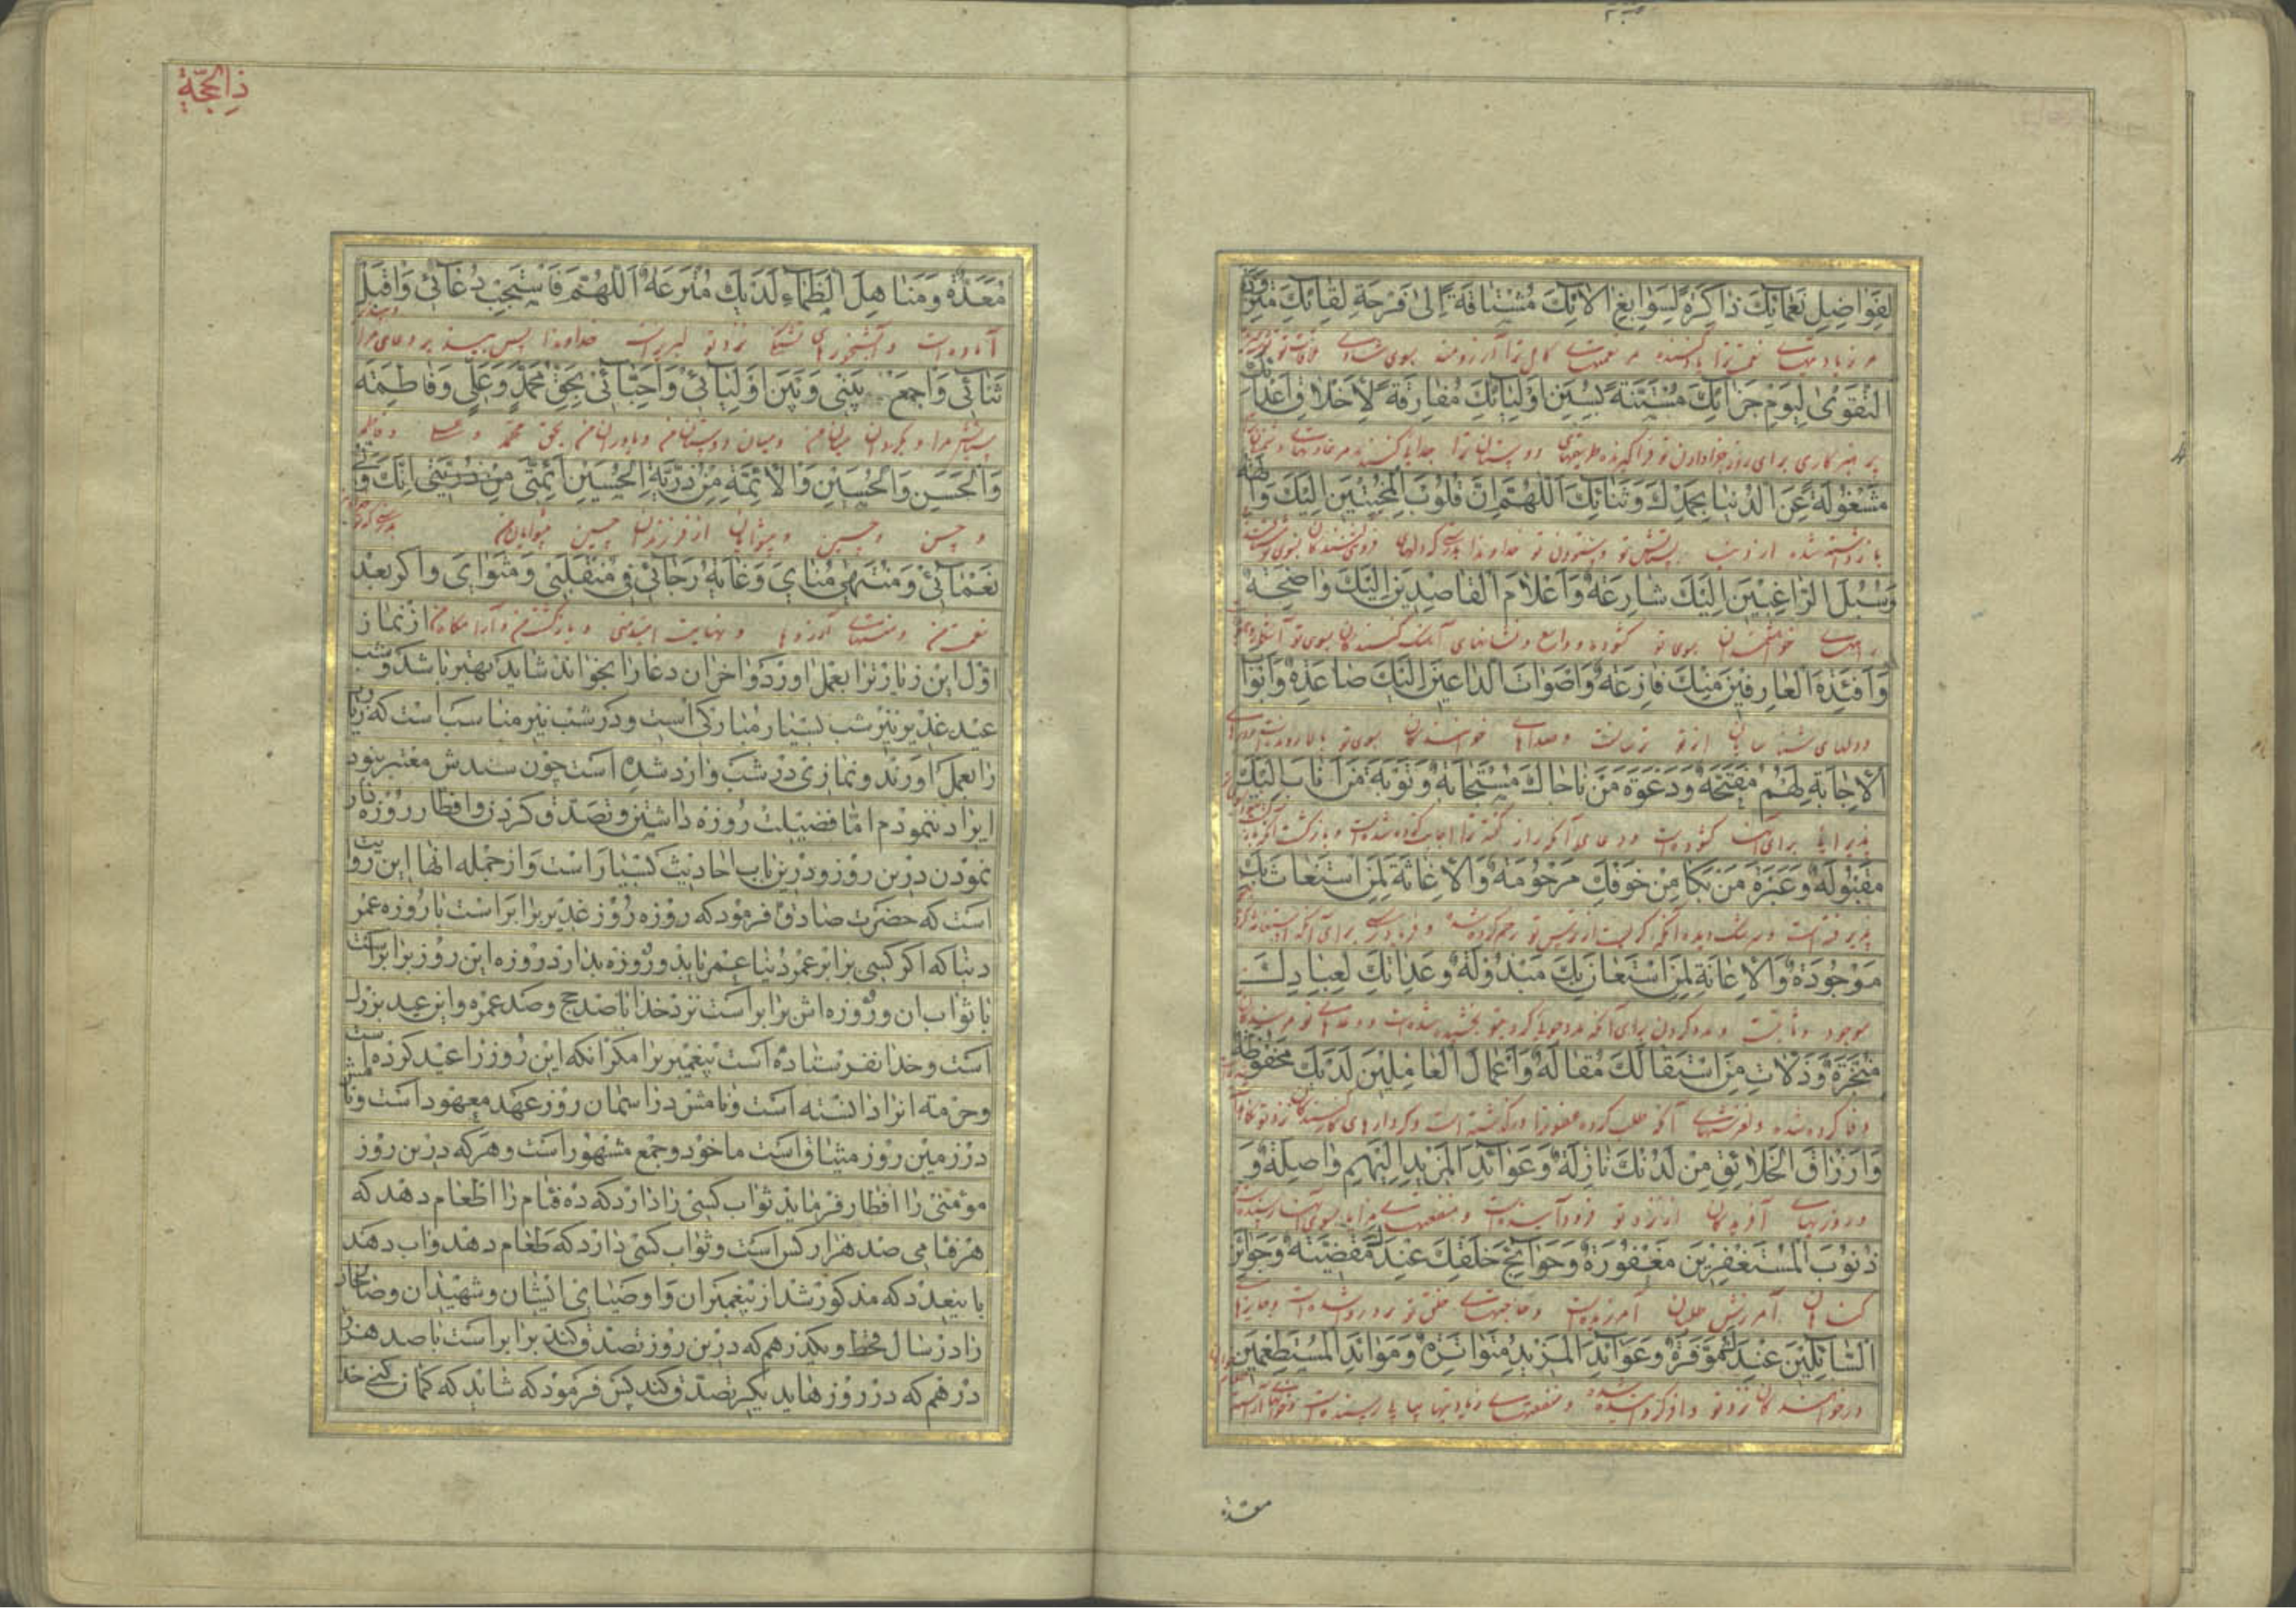 لِفَوَاضِلِ نَعْمَائِكَ ذَاكِرَةً لِسَوَابِغِ اٰلَائِكَ مُشْتَاقَةً إِلٰى فَرْحَةِ لِقَائِكَ مُتَزَوِّدَةً
مر زیادتیهای نعمت ترا یاد کننده مر نعمتهای کامل ترا آرزومند بسوی شادی ملاقات تو
التَّقْوٰى لِيَوْمِ جَزَائِكَ مُسْتَنَّةً بِسُنَنِ أَوْلِيَائِكَ مُفَارِقَةً لِأَخْلَاقِ أَعْدَائِكَ
پرهیزکاری برای روز جزا دادن تو فراگیرنده طریقهای دوستان ترا جدایی کننده مر عادتهای دشمنان
مَشْغُولَةً عَنِ الدُّنْيَا بِحَمْدِكَ وَثَنَائِكَ اَللّٰهُمَّ إِنَّ قُلُوبَ الْمُخْبِتِينَ إِلَيْكَ وَالِهَةٌ
باز داشته شده از دنیا بستایش تو و ستودن تو خداوندا بدرستی که دلهای فروتنی کنندکان بسوی تو
وَسُبُلَ الرَّاغِبِينَ إِلَيْكَ شَارِعَةٌ وَأَعْلَامَ الْقَاصِدِينَ إِلَيْكَ وَاضِحَةٌ
راههای خواهشمندان بسوی تو کشوده و واسع و نشانهای آهنک کنندکان بسوی تو آشکار
وَأَفْئِدَةَ الْعَارِفِينَ مِنْكَ فَازِعَةٌ وَأَصْوَاتَ الدَّاعِينَ إِلَيْكَ صَاعِدَةٌ وَأَبْوَابَ
و دلهای شناسایان از تو ترسانست و صداهای خوانندکان بسوی تو بالا رونده است
الْإِجَابَةِ لَهُمْ مُفَتَّحَةٌ وَدَعْوَةَ مَنْ نَاجَاكَ مُسْتَجَابَةٌ وَتَوْبَةَ مَنْ أَنَابَ إِلَيْكَ
برای ایشان کشوده است و دعای آنکه راز کفته ترا اجابت کرده شده است و بازکشت آنکه
مَقْبُولَةٌ وَعَبْرَةَ مَنْ بَكَا مِنْ خَوْفِكَ مَرْحُومَةٌ وَالْإِغَاثَةَ لِمَنِ اسْتَغَاثَ بِكَ
پذیرفته است و سرشک دیده آنکه کریست از ترس تو رحم کرده شده و فریادرسی برای آنکه
مَوْجُودَةٌ وَالْإِعَانَةَ لِمَنِ اسْتَعَانَ بِكَ مَبْذُولَةٌ وَعِدَاتِكَ لِعِبَادِكَ
موجود و مدد کردن برای آنکه مدد جوید بتو بخشیده شده است و وعدهای تو
مُنْجَزَةٌ وَزَلَّاتِ مَنِ اسْتَقَالَكَ مُقَالَةٌ وَأَعْمَالَ الْعَامِلِينَ لَدَيْكَ مَحْفُوظَةٌ
وفا کرده شده و لغزشهای آنکه طلب کرده عفو ترا درکذشته است و کردارهای
وَأَرْزَاقَ الْخَلَائِقِ مِنْ لَدُنْكَ نَازِلَةٌ وَعَوَائِدَ الْمَزِيدِ إِلَيْهِمْ وَاصِلَةٌ وَ
و روزیهای آفریدکان از نزد تو فرود آینده است و منفعتهای
ذُنُوبَ الْمُسْتَغْفِرِينَ مَغْفُورَةٌ وَحَوَائِجَ خَلْقِكَ عِنْدَكَ مَقْضِيَّةٌ وَجَوَائِزَ
کناهان آمرزش طلبان آمرزیده است و حاجتهای خلق تو نزد تو روا شده است
السَّائِلِينَ عِنْدَكَ مُوَفَّرَةٌ وَعَوَائِدَ الْمَزِيدِ مُتَوَاتِرَةٌ وَمَوَائِدَ الْمُسْتَطْعِمِينَ
درخواست کنندکان نزد تو وافر کرده شده و منفعتهای زیادتیها پیاپی رسیده است
معدة
ذِالحِجّة
مُعَدَّةٌ وَمَنَاهِلَ الظِّمَاءِ لَدَيْكَ مُتْرَعَةٌ اَللّٰهُمَّ فَاسْتَجِبْ دُعَائِي وَاقْبَلْ
آماده است و آبشخورهای تشنکان نزد تو لبریز است خداوندا پس دعای مرا
ثَنَائِي وَاجْمَعْ بَيْنِي وَبَيْنَ أَوْلِيَائِي وَأَحِبَّائِي بِحَقِّ مُحَمَّدٍ وَعَلِيٍّ وَفَاطِمَةَ
ستایش مرا میان من و میان دوستان من و یاوران من بحق محمد و علی و فاطمه
وَالْحَسَنِ وَالْحُسَيْنِ وَالْأَئِمَّةِ مِنْ ذُرِّيَّةِ الْحُسَيْنِ أَئِمَّتِي مِنْ ذُرِّيَّتِي إِنَّكَ وَلِيُّ
و حسن و حسین و پیشوایان از فرزندان حسین پیشوایان من بدرستی که تو
نَعْمَائِي وَمُنْتَهٰى مُنَايَ وَغَايَةُ رَجَائِي فِي مُنْقَلَبِي وَمَثْوَايَ واکر بعد
نعمت من و منتهای آرزوها و نهایت امید منی و بازکشتن من و آرامکاه من از نماز
اول این زیارت را بعمل اورد و اخر ان دعا را بخواند شاید بهتر باشد و شب
عید غدیر نیز شب بسیار مبارکی است و در شب نیز مناسب است که زیارت
را بعمل اورند و نمازی در شب وارد شده است چون سندش معتبر نبود
ایراد ننمودم اما فضیلت روزه داشتن و تصدق کردن و افطار روزه دار
نمودن در این روز و در این باب احادیث بسیار است و از جمله انها این روایت
است که حضرت صادق فرمود که روزه روز غدیر برابر است با روزه عمر
دنیا که اکر کسی برابر عمر دنیا عمر یابد و روزه بدارد روزه این روز برابر است
با ثواب ان و روزه اش برابر است نزد خدا با صد حج و صد عمره و این عید بزرک
است و خدا نفرستاده است پیغمبری را مکر انکه این روز را عید کرده است
و حرمت انرا دانسته است و نامش در اسمان روز عهد معهود است و نامش
در زمین روز میثاق است ماخوذ و جمع مشهور است و هر که در این روز
مؤمنی را افطار فرماید ثواب کسی را دارد که ده فئام را اطعام دهد که
هر فئامی صد هزار کس است و ثواب کسی دارد که طعام دهد و اب دهد
باین عدد که مذکور شد از پیغمبران و اوصیای ایشان و شهیدان و صالحان
را در سال قحط و یکدرهم که در این روز تصدق کند برابر است با صد هزار
درهم که در روزهای دیکر تصدق کند پس فرمود که شاید که کمان کنی خدا